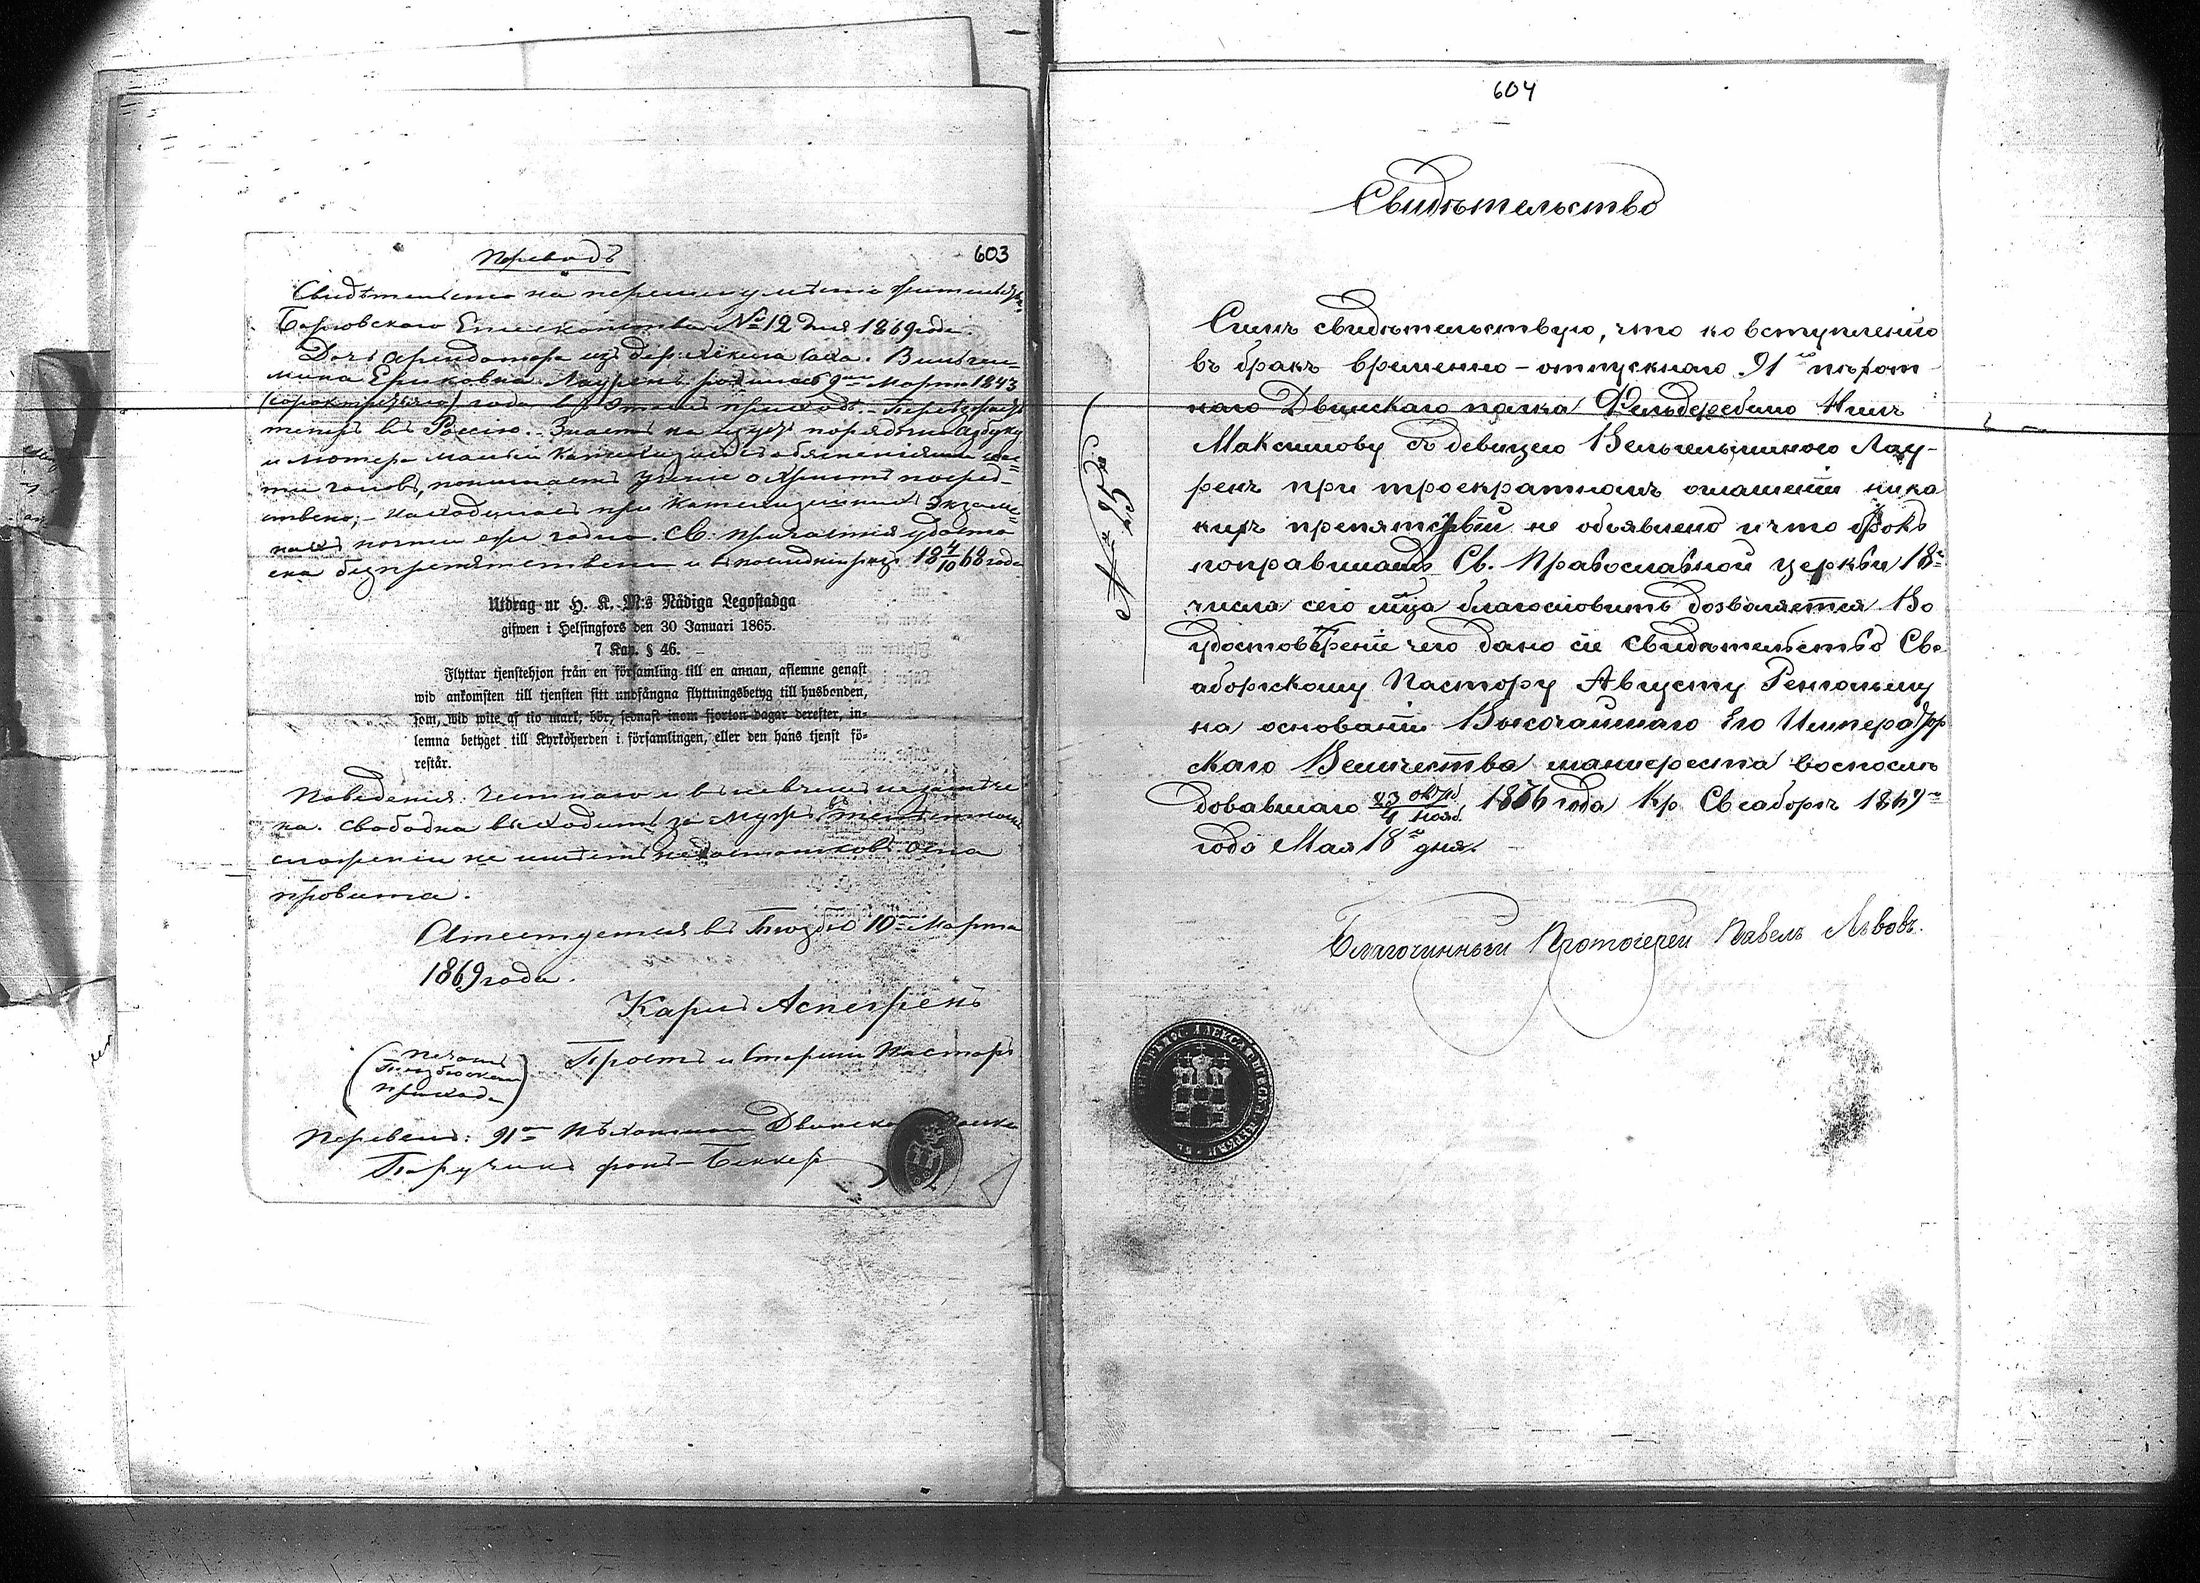 603
Переводъ
Свидѣтельство на перемену мѣста жительства
Борговскаго Епископства № 12 дня 1869 года.
Дочь арендатора изъ дер. Вильгель=
мина Ериковна Лауренъ родилась 9го Марта 1843
(сорок третьяго) года въ этомъ приходѣ. – Переѣзжаетъ
теперь въ Россію. – Знаетъ на изустъ порядочно азбуку
и Лютера малый Катихизисъ съ объясненіями
, понимаетъ ученіе о Христѣ посред=
ственно; – находилась при Катихизисныхъ Экзаме=
нахъ почти еже годно. Св. причастія удосто
ена безпрепятственно и въ послѣдній разъ 18 4/10 68 года
Utdrag ur H. K. M:s Nådiga Legostadga
gifwen i Helsingfors den 30 Januari 1865.
7 Kap. § 46.
Flyttar tjenstehjon från en församling till en annan, aflemne genast
wid ankomsten till tjensten sitt undfångna flyttningsbetyg till husbonden,
som, wid wite af tio mark, bör, sednast inom fjorton dagar derefter, in=
lemna betyget till Kyrkoherden i församlingen, eller den hans tjenst fö=
restår.
Поведенія: честнаго и въ чемъ незамѣче
на. Свободна выходить за мужъ въ тѣлесномъ
сложеніи не имѣетъ недостатковъ. Оспа
привита.
Атестуется въ 10го Марта
1869 года.
Карлъ Аспегренъ
Простъ и Старшій Пасторъ
(Печать
прихода)
Перевелъ: 91го Пѣхотнаго Двинскаго полка
Поручикъ фонъ-Беккеръ
604
Свидѣтельство
Симъ свидѣтельствую, что ко вступленію
въ бракъ временно-отпускнаго 91го пѣхот-
наго Двинскаго полка Фельдфебелю Ниль
Максимову съ девицею Вельгельминою Лау-
ренъ при троекратномъ оглашеніи ника
кихъ препятствій не объявлено и что бракъ
по правиламъ Св. Православной церкви 18го
числа сего мца благословить дозволяется. Во
удостовѣреніе чего дано сіе свидѣтельство Све
аборгскому Пастору Августу Ренгольму
на основаніи Высочайшаго Его Император
скаго Величества манифеста воспослѣ
довавшаго 23 октяб./4 нояб. 18 6 года Кр. Свеаборгъ 1869го
года Мая 18го дня.
Благочинный Протоіерей Павелъ Львовъ.
№ 95й